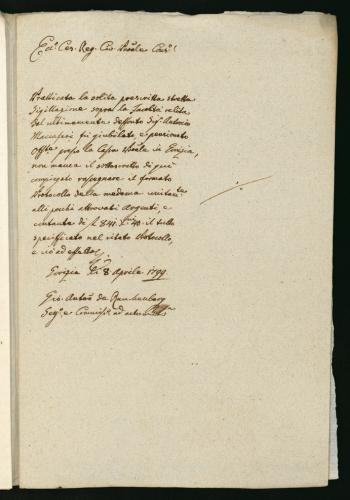 Ecc. Ces. Reg. Cap. Cons.
Pratticata la solita prescritta stretta
Sigillazione sopra la facoltà relita
dal ultimamente deffonto Sig. Antonio
fù giubilato, e pensionato
presso la Cassa in Gorizia,
non manca il sottoscritto di qui
compiegato rassegnare il formato
Protocollo della medema unitam.te
alli pochi ritrovati Argenti, e
contante di f 841. 40. il tutto
specificato nel citato Protocollo,
e ciò ad effetto
Gorizia Li 8 Aprile 1799
Gio. Anton de
Seg. e Commiss. ad actum